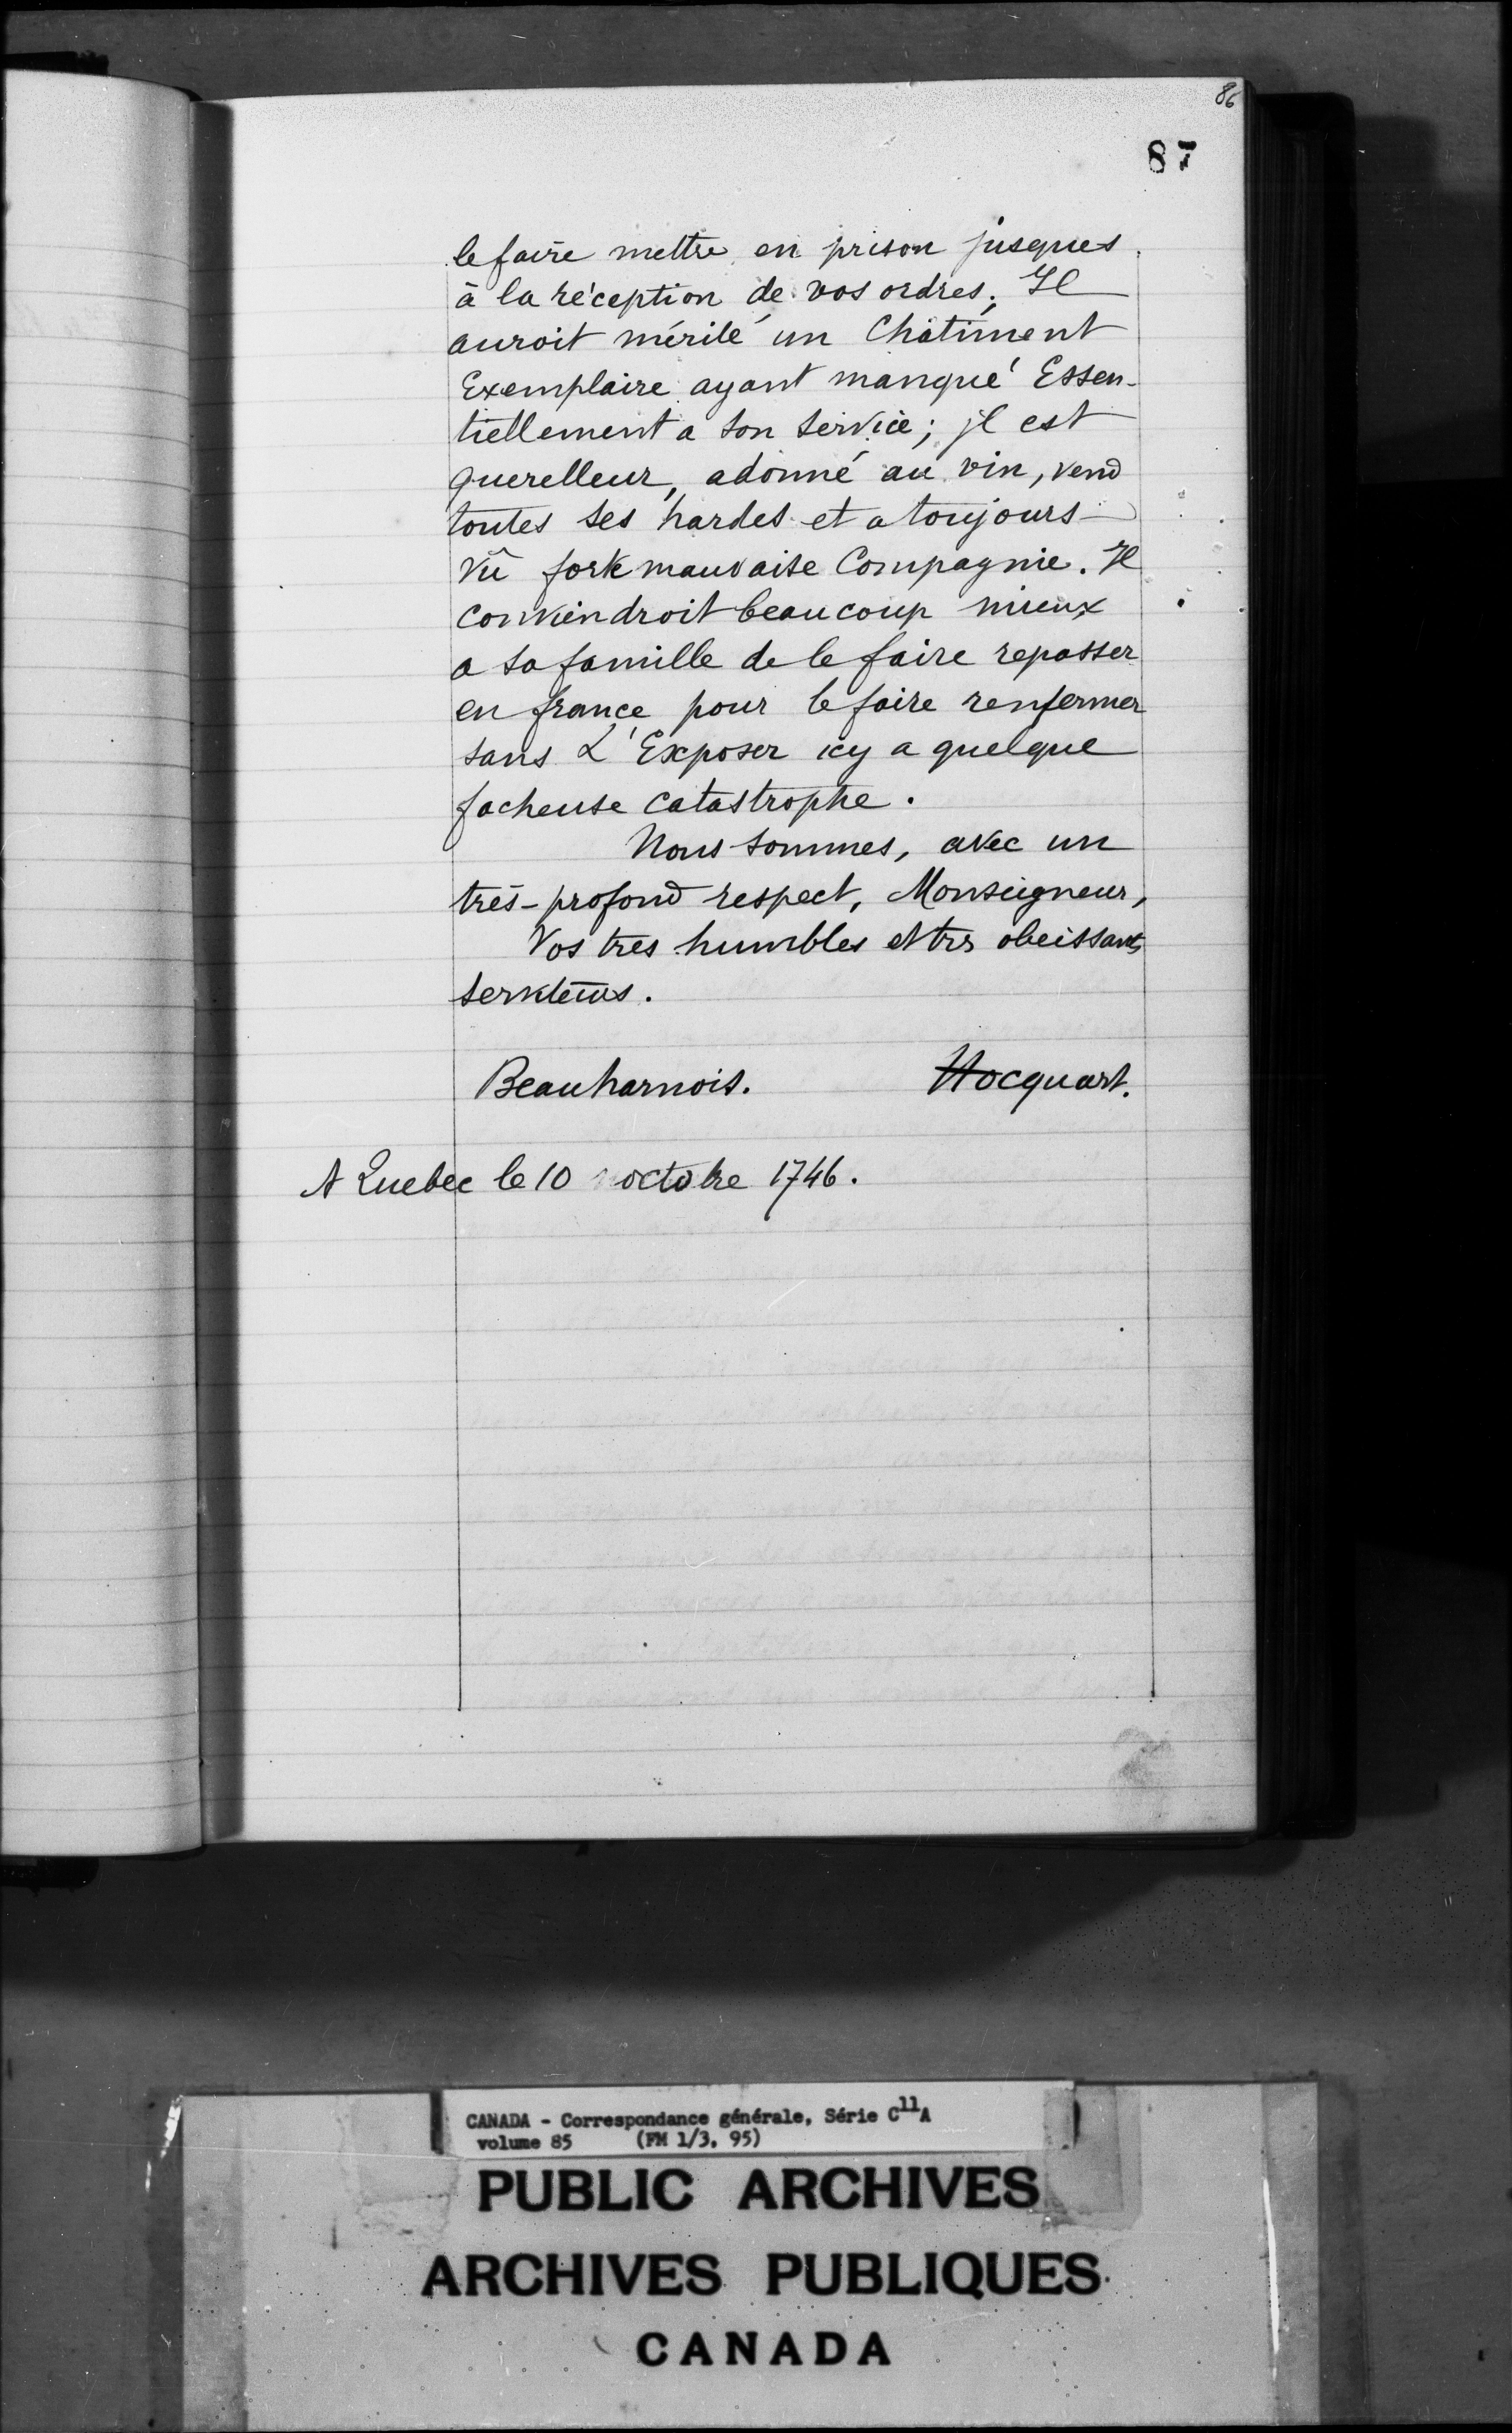 86
87
le faire mettre en prison jusques
à la réception de vos ordres. Il
auroit mérité un Châtiment
Exemplaire ayant manqué Essen-
tiellement a son service; jl est
querelleur, adonné au vin, vend
toutes ses hardes et a toujours
vû fort mauvaise Compagnie. Il
conviendroit beaucoup mieux
a sa famille de le faire repasser
en france pour le faire renfermer
sans L'Exposer icy a quelque
facheuse catastrophe.
Nous sommes, avec un
très-profond respect, Monseigneur,
Vos tres humbles et trs obeissants
servteurs.
Beauharnois. Hocquart.
A Quebec le 10 octobre 1746.
CANADA - Correspondance générale, Série C11A
volume 85 (FM 1/3, 95)
PUBLIC ARCHIVES
ARCHIVES PUBLIQUES
CANADA